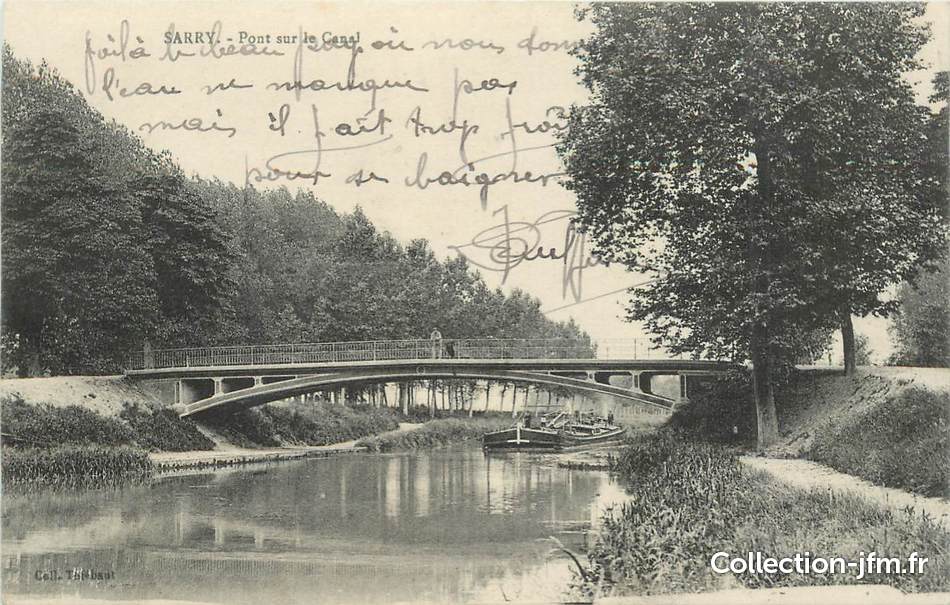 SARRY. - Pont sur le Canal
Voilà le beau pays où nous
l'eau ne manque pas
mais il fait trop froid
pour se baigner
Coll. Thiébaut
Collection-jfm.fr